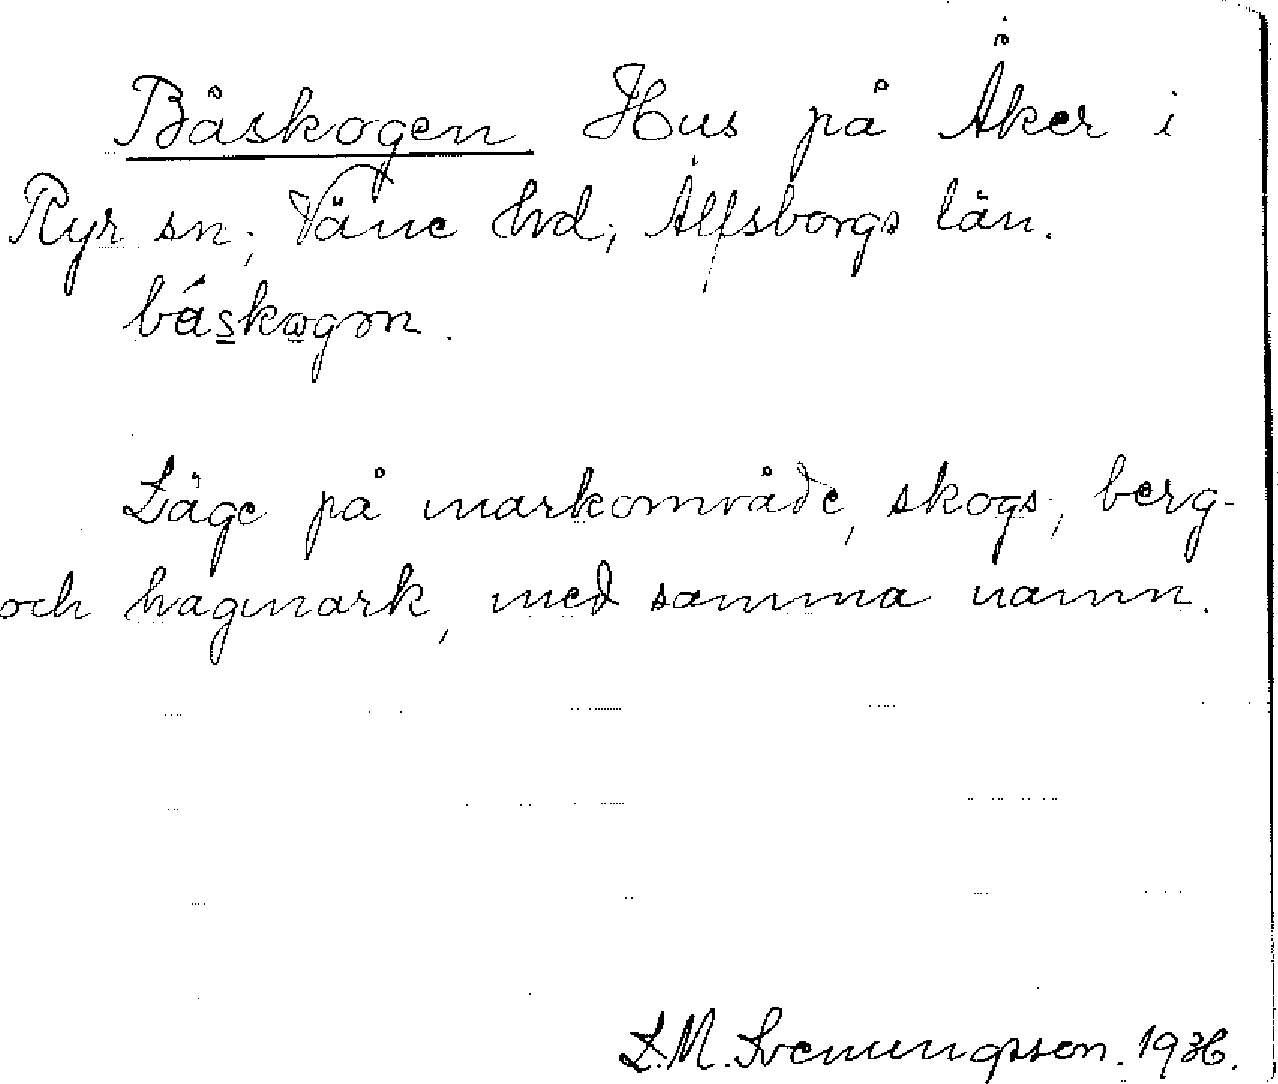 Båskogen Hus på Åker i
Ryr sn; Väne hd; Älfsborgs län.
båskogən.
Läge på markområde, skogs-, berg-
och hagmark, med samma namn.
L.M. Svenungsson. 1936.